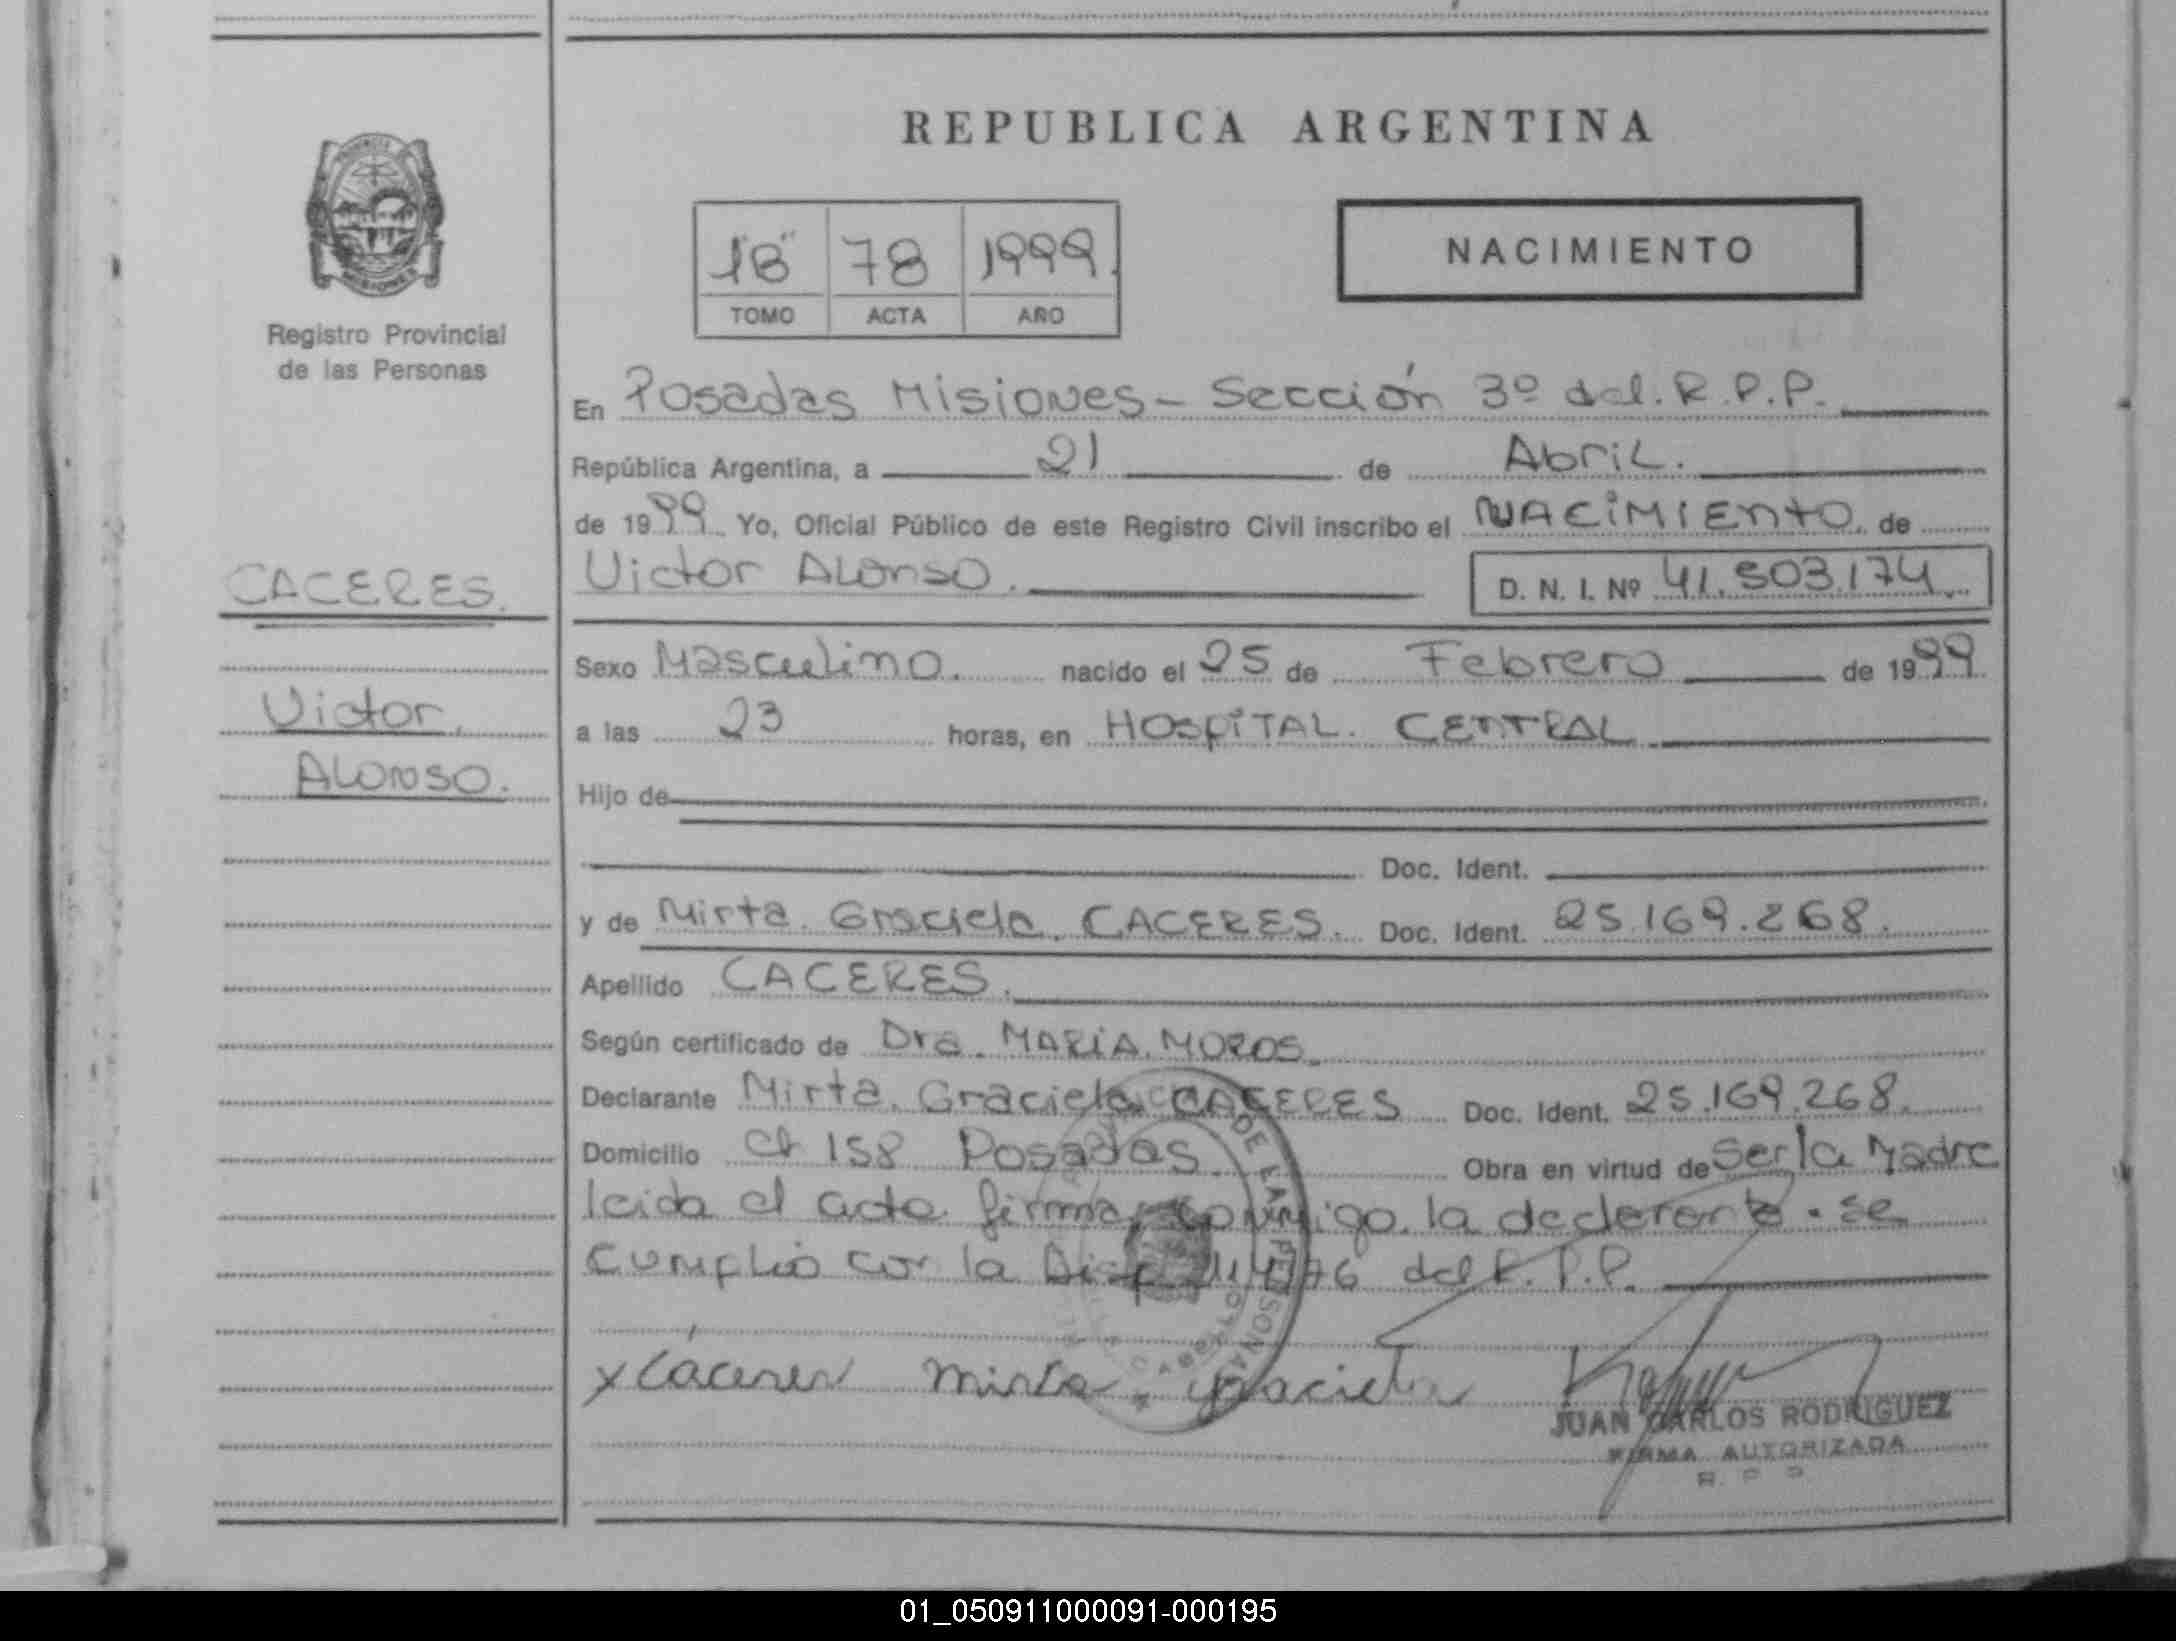 REPUBLICA ARGENTINA
PROVINCIA
MISIONES
Registro Provincial
de las Personas
1"B" 78 1999.
TOMO ACTA AÑO
NACIMIENTO
En Posadas Misiones - Sección 3º del. R.P.P.
República Argentina, a 21 de Abril.
de 1999 Yo, Oficial Público de este Registro Civil inscribo el NACIMIENTO. de
CACERES.
Victor Alonso.
D. N. I. Nº 41.503.174.
Sexo Masculino. nacido el 25 de Febrero de 1999
Victor.
a las 23 horas, en HOSPITAL. CENTRAL
Alonso.
Hijo de
Doc. Ident.
y de Mirta. Graciela. CACERES. Doc. Ident. 25.169.268.
Apellido CACERES.
Según certificado de Dra. MARIA. MOROS.
Declarante Mirta. Graciela CACERES Doc. Ident. 25.169.268.
Domicilio Ch 158 Posadas. Obra en virtud de Ser la Madre
leida el acta firma conmigo. la declarante. se
cumplio con la Disp. 76 del R.P.P.
x Caceres Mirta Graciela
JUAN CARLOS RODRIGUEZ
FIRMA AUTORIZADA
R. P. P.
01_050911000091-000195